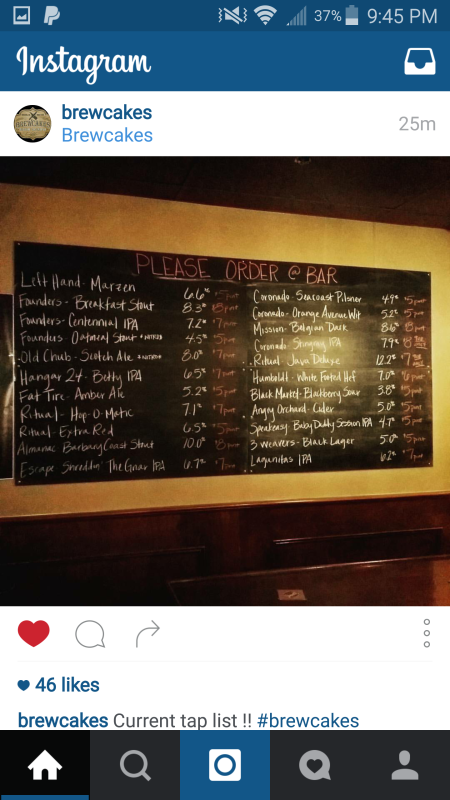 37% 9:45 PM
Instagram
brewcakes
Brewcakes
25m
PLEASE ORDER @ BAR
Left Hand - Marzen 6.6%
Founders - Breakfast Stout 8.3%
Founders - Centennial IPA 7.2%
Founders - Oatmeal Stout 4.5%
Old Chub - Scotch Ale 8.0%
Hangar 24 - Betty IPA 6.5%
Fat Tire - Amber Ale 5.2%
Ritual - Hop-O-Matic 7.1%
Ritual - Extra Red 6.5%
Almanac Barbary Coast Stout 10.0%
Escape Shreddin The Gnar IPA 6.7%
Coronado - Seacoast Pilsner 4.9%
Coronado - Orange Avenue Wit 5.2%
Mission - Belgian Dark 8.6%
Coronado - Stingray IPA 7.9%
Ritual - Java Deluxe 12.2%
Humboldt - White Footed Hef 7.0%
Black Market - Blackberry Sour 3.8%
Angry Orchard - Cider 5.0%
Speakeasy - Baby Daddy Session IPA 4.7%
3 Weavers - Black Lager 5.0%
Lagunitas IPA 6.2%
46 likes
brewcakes Current tap list !! #brewcakes